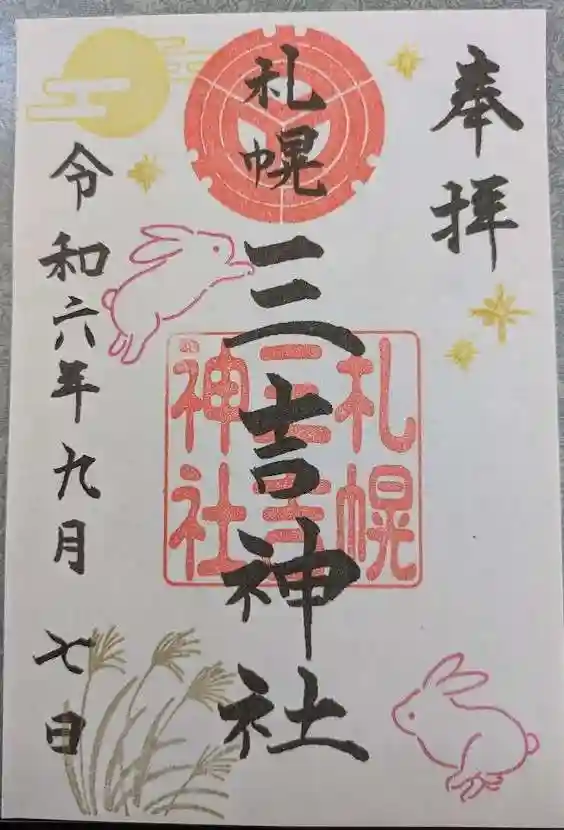 奉拝
札幌三吉神社
札幌
三吉
神社
令和六年九月七日